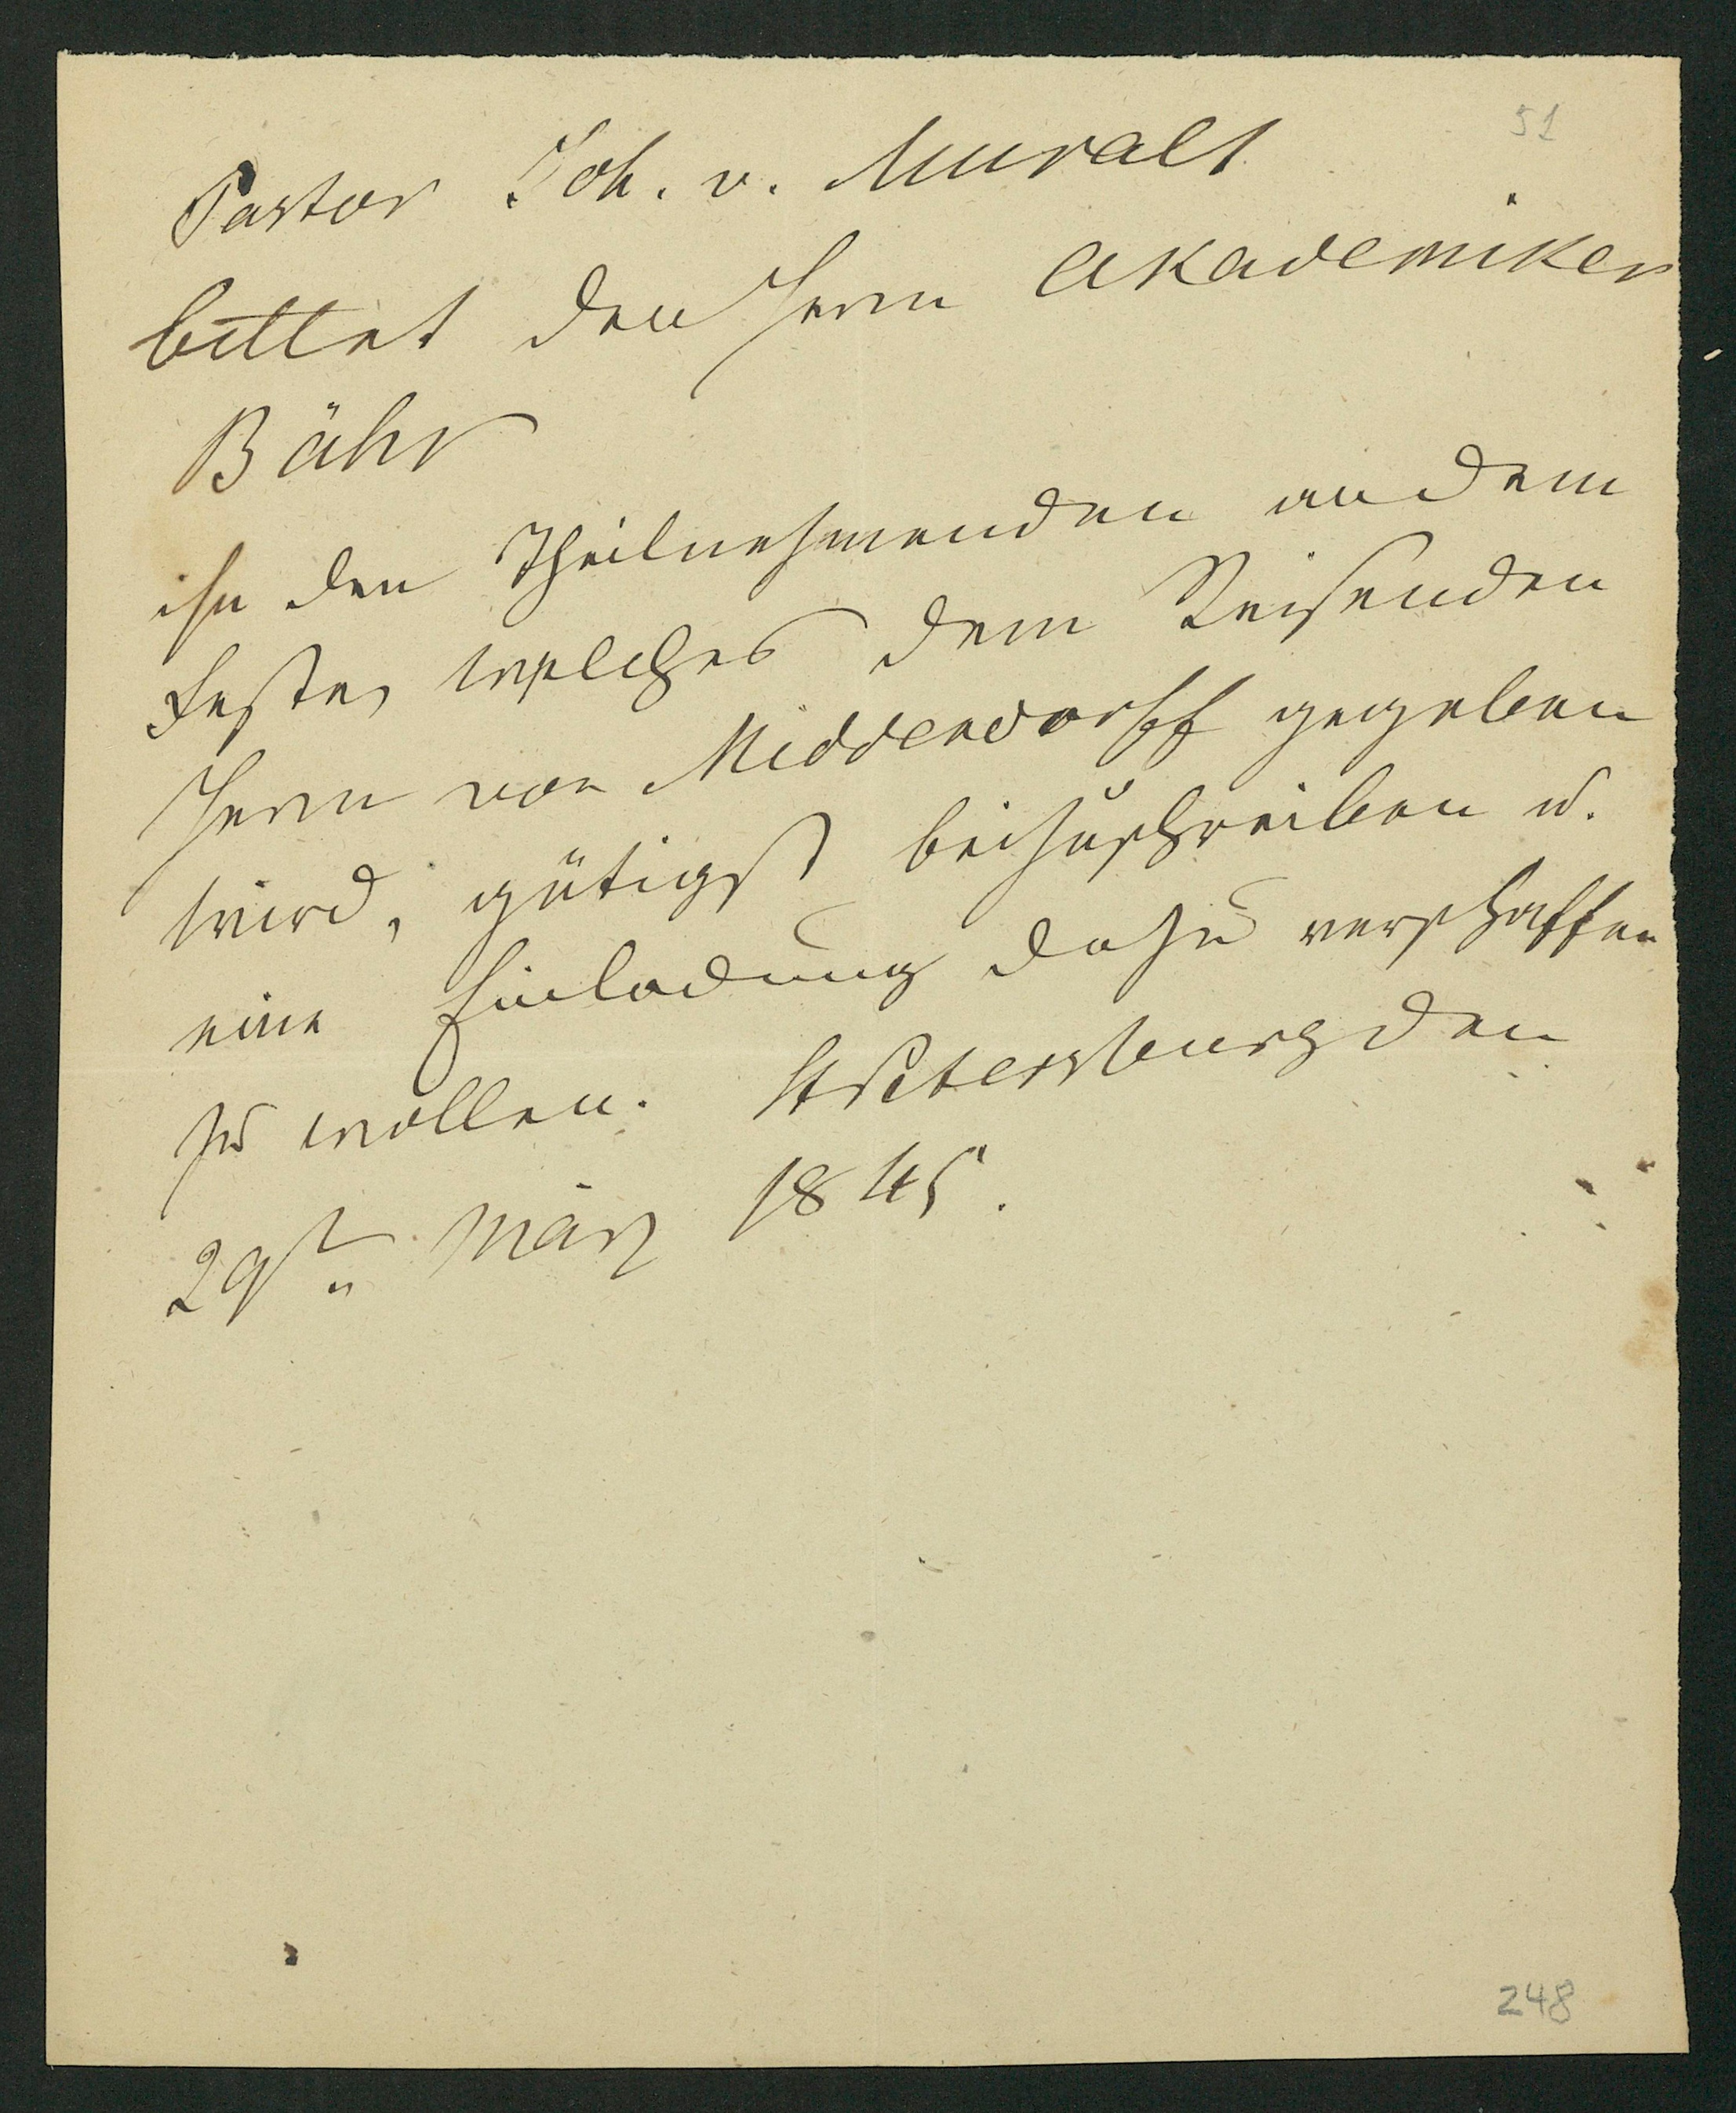 51
Pastor Joh. v. Muralt
bittet den Herrn Akademiker
Bähr
ihn den Theilnehmenden an dem
Feste, welches dem Reisenden
Herrn von Middendorff gegeben
wird, gütigst beizuschreiben u.
eine Einladung dazu verschaffen
zu wollen. St Petersburg den
29sten März 1845.
248